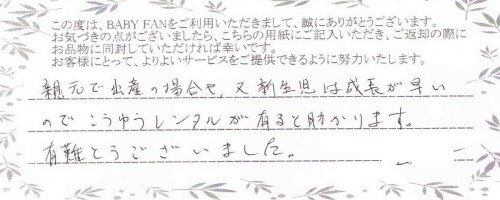 この度は、BABY FANをご利用いただきまして、誠にありがとうございます。
お気づきの点がございましたら、こちらの用紙にご記入いただき、ご返却の際に
お品物に同封していただければ幸いです。
お客様にとって、よりよいサービスをご提供できるように努力いたします。
親元で出産の場合や、又新生児は成長が早い
のでこうゆうレンタルが有ると助かります。
有難とうございました。